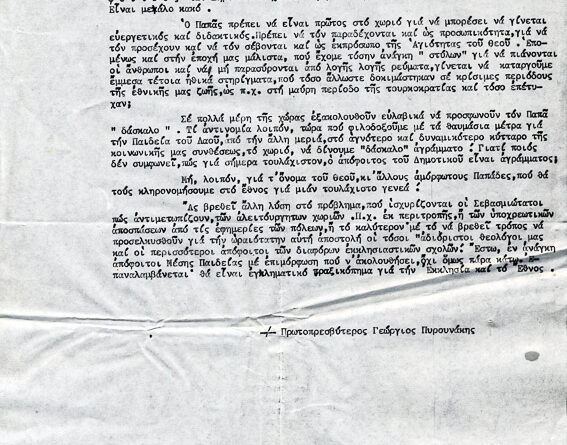 Εἶναι μεγάλο κακό .
Ὁ Παπᾶς πρέπει νά εἶναι πρῶτος στό χωριό γιά νά μπορέσει νά γίνεται
εὐεργετικός καί διδακτικός.Πρέπει νά τόν παραδέχονται καί ὡς προσωπικότητα,γιά νά
τόν προσέχουν καί νά τόν σέβονται καί ὡς ἐκπρόσωπο τῆς Ἁγιότητος τοῦ Θεοῦ . Ἑπο-
μένως καί στήν ἐποχή μας μάλιστα, πού ἔχομε τόσην ἀνάγκη " στύλων" γιά νά πιάνονται
οἱ ἄνθρωποι καί νά μή παρασύρονται ἀπό λογῆς λογῆς ρεύματα,γίνεται νά καταργοῦμε
ἔμμεσα τέτοια ἠθικά στηρίγματα,πού τόσο ἄλλωστε δοκιμάστηκαν σέ κρίσιμες περιόδους
τῆς ἐθνικῆς μας ζωῆς,ὡς π.χ. στή μαύρη περίοδο τῆς τουρκοκρατίας καί τόσο ἐπέτυ-
χαν;
Σέ πολλά μέρη τῆς χώρας ἐξακολουθοῦν εὐλαβικά νά προσφωνοῦν τόν Παπᾶ
" δάσκαλο" . Τί ἀντινομία λοιπόν, τώρα πού φιλοδοξοῦμε μέ τά θαυμάσια μέτρα γιά
τήν Παιδεία τοῦ Λαοῦ,ἀπό τήν ἄλλη μεριά,στό ἁγνότερο καί δυναμικότερο κύτταρο τῆς
κοινωνικῆς μας συνθέσεως,τό χωριό, νά δίνουμε "δάσκαλο" ἀγράμματο ! Γιατί ποιός
δέν συμφωνεῖ,πώς γιά σήμερα τουλάχιστον,ὁ ἀπόφοιτος τοῦ Δημοτικοῦ εἶναι ἀγράμματος;
Μή, λοιπόν, γιά τ'ὄνομα τοῦ Θεοῦ,κι'ἄλλους ἀμόρφωτους Παπάδες,πού θά
τούς κληρονομήσουμε στό ἔθνος γιά μιάν τουλάχιστο γενεά !
Ἄς βρεθεῖ ἄλλη λύση στό πρόβλημα,πού ἰσχυρίζονται οἱ Σεβασμιώτατοι
πώς ἀντιμετωπίζουν,τῶν ἀλειτούργητων χωριῶν .Π.χ. ἐκ περιτροπῆς,ἤ τῶν ὑποχρεωτικῶν
ἀποσπάσεων ἀπό τίς ἐφημερίες τῶν πόλεων,ἤ τό καλύτερον μέ τό νά βρεθεῖ τρόπος νά
προσελκυσθοῦν γιά τήν ὡραιότατην αὐτή ἀποστολή οἱ τόσοι "ἀδιόριστοι θεολόγοι μας
καί οἱ περισσότεροι ἀπόφοιτοι τῶν διαφόρων ἐκκλησιαστικῶν σχολῶν. Ἔστω, ἐν ἀνάγκη
ἀπόφοιτοι Μέσης Παιδείας μέ ἐπιμόρφωση πού ν'ἀκολουθήσει,ὄχι ὅμως πάρα κάτω. Ἐ-
παναλαμβάνεται· θά εἶναι ἐγκληματικό πραξικόπημα γιά τήν Ἐκκλησία καί τό Ἔθνος .
Πρωτοπρεσβύτερος Γεώργιος Πυρουνάκης